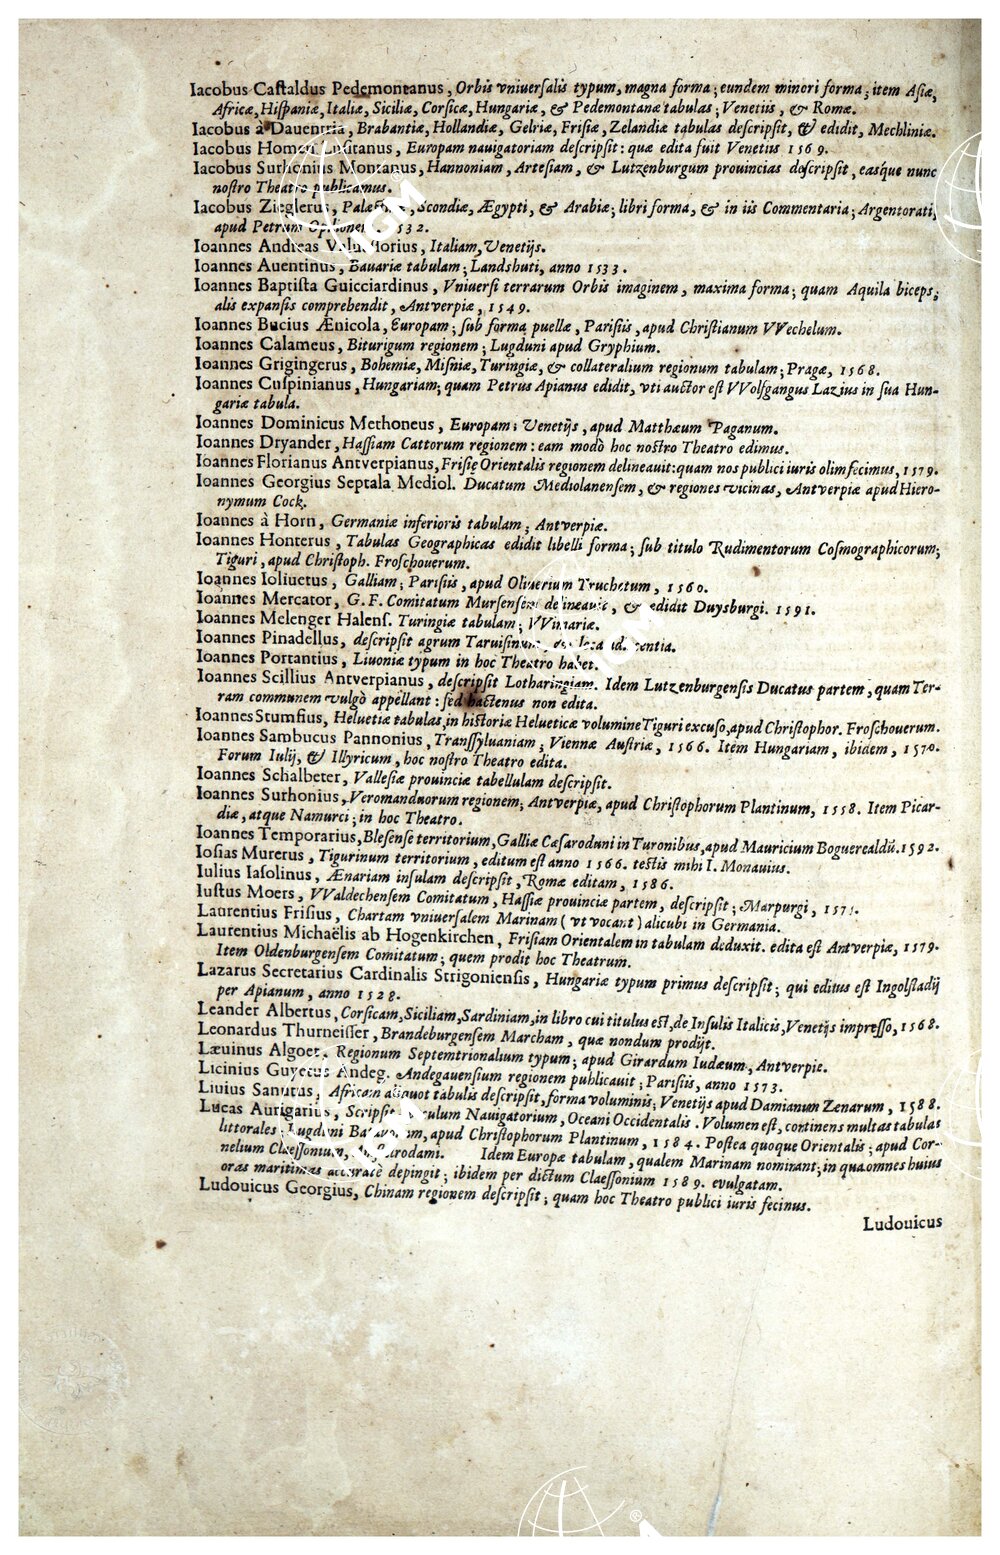 Iacobus Castaldus Pedemontanus, Orbis vniuersalis typum, magna forma; eundem minori forma; item Asiæ,
Africæ, Hispaniæ, Italiæ, Siciliæ, Corsicæ, Hungariæ, & Pedemontanæ tabulas; Venetiis, & Romæ.
Iacobus à Dauentria, Brabantiæ, Hollandiæ, Gelriæ, Frisiæ, Zelandiæ tabulas descripsit, & edidit, Mechliniæ.
Iacobus Homen Lusitanus, Europam nauigatoriam descripsit: quæ edita fuit Venetiis 1569.
Iacobus Surhonius Montanus, Hannoniam, Artesiam, & Lutzenburgum prouincias descripsit, easq́ue nunc
nostro Theatro publicamus.
Iacobus Zieglerus, Palæstinæ, Scondiæ, Ægypti, & Arabiæ; libri forma, & in iis Commentaria; Argentorati,
apud Petrum 1532.
Ioannes Andreas Italiam, Venetijs.
Ioannes Auentinus, Bauariæ tabulam; Landshuti, anno 1533.
Ioannes Baptista Guicciardinus, Vniuersi terrarum Orbis imaginem, maxima forma; quam Aquila biceps,
alis expansis comprehendit, Antverpiæ, 1549.
Ioannes Bucius Ænicola, Europam; sub forma puellæ, Parisiis, apud Christianum VVechelum.
Ioannes Calameus, Biturigum regionem; Lugduni apud Gryphium.
Ioannes Grigingerus, Bohemiæ, Misniæ, Turingiæ, & collateralium regionum tabulam; Pragæ, 1568.
Ioannes Cuspinianus, Hungariam; quam Petrus Apianus edidit, vti auctor est VVolfgangus Lazius in sua Hun-
gariæ tabula.
Ioannes Dominicus Methoneus, Europam; Venetijs, apud Matthæum Paganum.
Ioannes Dryander, Hassiam Cattorum regionem: eam modò hoc nostro Theatro edimus.
Ioannes Florianus Antverpianus, Frisię Orientalis regionem delineauit: quam nos publici iuris olim fecimus, 1579.
Ioannes Georgius Septala Mediol. Ducatum Mediolanensem, & regiones vicinas, Antverpiæ apud Hiero-
nymum Cock.
Ioannes à Horn, Germaniæ inferioris tabulam; Antverpiæ.
Ioannes Honterus, Tabulas Geographicas edidit libelli forma; sub titulo Rudimentorum Cosmographicorum;
Tiguri, apud Christoph. Froschouerum.
Ioannes Ioliuetus, Galliam; Parisiis, apud Oliuerium Truchetum, 1560.
Ioannes Mercator, G. F. Comitatum Mursensem delineauit, & edidit Duysburgi. 1591.
Ioannes Melenger Halens. Turingiæ tabulam; VVimariæ.
Ioannes Pinadellus, descripsit agrum Taruisinum,
Ioannes Portantius, Liuoniæ typum in hoc Theatro habet.
Ioannes Scillius Antverpianus, descripsit Lotharingiam. Idem Lutzenburgensis Ducatus partem, quam Ter-
ram communem vulgò appellant: sed hactenus non edita.
Ioannes Stumfius, Heluetiæ tabulas, in historiæ Helueticæ volumine Tiguri excuso, apud Christophor. Froschouerum.
Ioannes Sambucus Pannonius, Transsyluaniam; Viennæ Austriæ, 1566. Item Hungariam, ibidem, 1570.
Forum Iulij, & Illyricum, hoc nostro Theatro edita.
Ioannes Schalbeter, Vallesiæ prouinciæ tabellulam descripsit.
Ioannes Surhonius, Veromanduorum regionem; Antverpiæ, apud Christophorum Plantinum, 1558. Item Picar-
diæ, atque Namurci; in hoc Theatro.
Ioannes Temporarius, Blesense territorium, Galliæ Cæsaroduni in Turonibus, apud Mauricium Boguerealdū. 1592.
Iosias Murerus, Tigurinum territorium, editum est anno 1566. testis mihi I. Monauius.
Iulius Iasolinus, Ænariam insulam descripsit, Romæ editam, 1586.
Iustus Moers, VValdechensem Comitatum, Hassiæ prouinciæ partem, descripsit; Marpurgi, 1575.
Laurentius Frisius, Chartam vniuersalem Marinam (vt vocant) alicubi in Germania.
Laurentius Michaëlis ab Hogenkirchen, Frisiam Orientalem in tabulam deduxit. edita est Antverpiæ, 1579.
Item Oldenburgensem Comitatum; quem prodit hoc Theatrum.
Lazarus Secretarius Cardinalis Strigoniensis, Hungariæ typum primus descripsit; qui editus est Ingolstadij
per Apianum, anno 1528.
Leander Albertus, Corsicam, Siciliam, Sardiniam, in libro cui titulus est, de Insulis Italicis, Venetijs impresso, 1568.
Leonardus Thurneisser, Brandeburgensem Marcham, quæ nondum prodijt.
Læuinus Algoet, Regionum Septemtrionalium typum; apud Girardum Iudæum, Antverpie.
Licinius Guyetus Andeg. Andegauensium regionem publicauit; Parisiis, anno 1573.
Liuius Sanutus, Africam aliquot tabulis descripsit, forma voluminis; Venetijs apud Damianum Zenarum, 1588.
Lucas Aurigarius, Nauigatorium, Oceani Occidentalis. Volumen est, continens multas tabulas
littorales; Lugduni apud Christophorum Plantinum, 1584. Postea quoque Orientalis; apud Cor-
nelium Claessonium, Idem Europæ tabulam, qualem Marinam nominant; in qua omnes huius
oras maritimas accuratè depingit; ibidem per dictum Claessonium 1589. evulgatam.
Ludouicus Georgius, Chinam regionem descripsit; quam hoc Theatro publici iuris fecinus.
Ludouicus